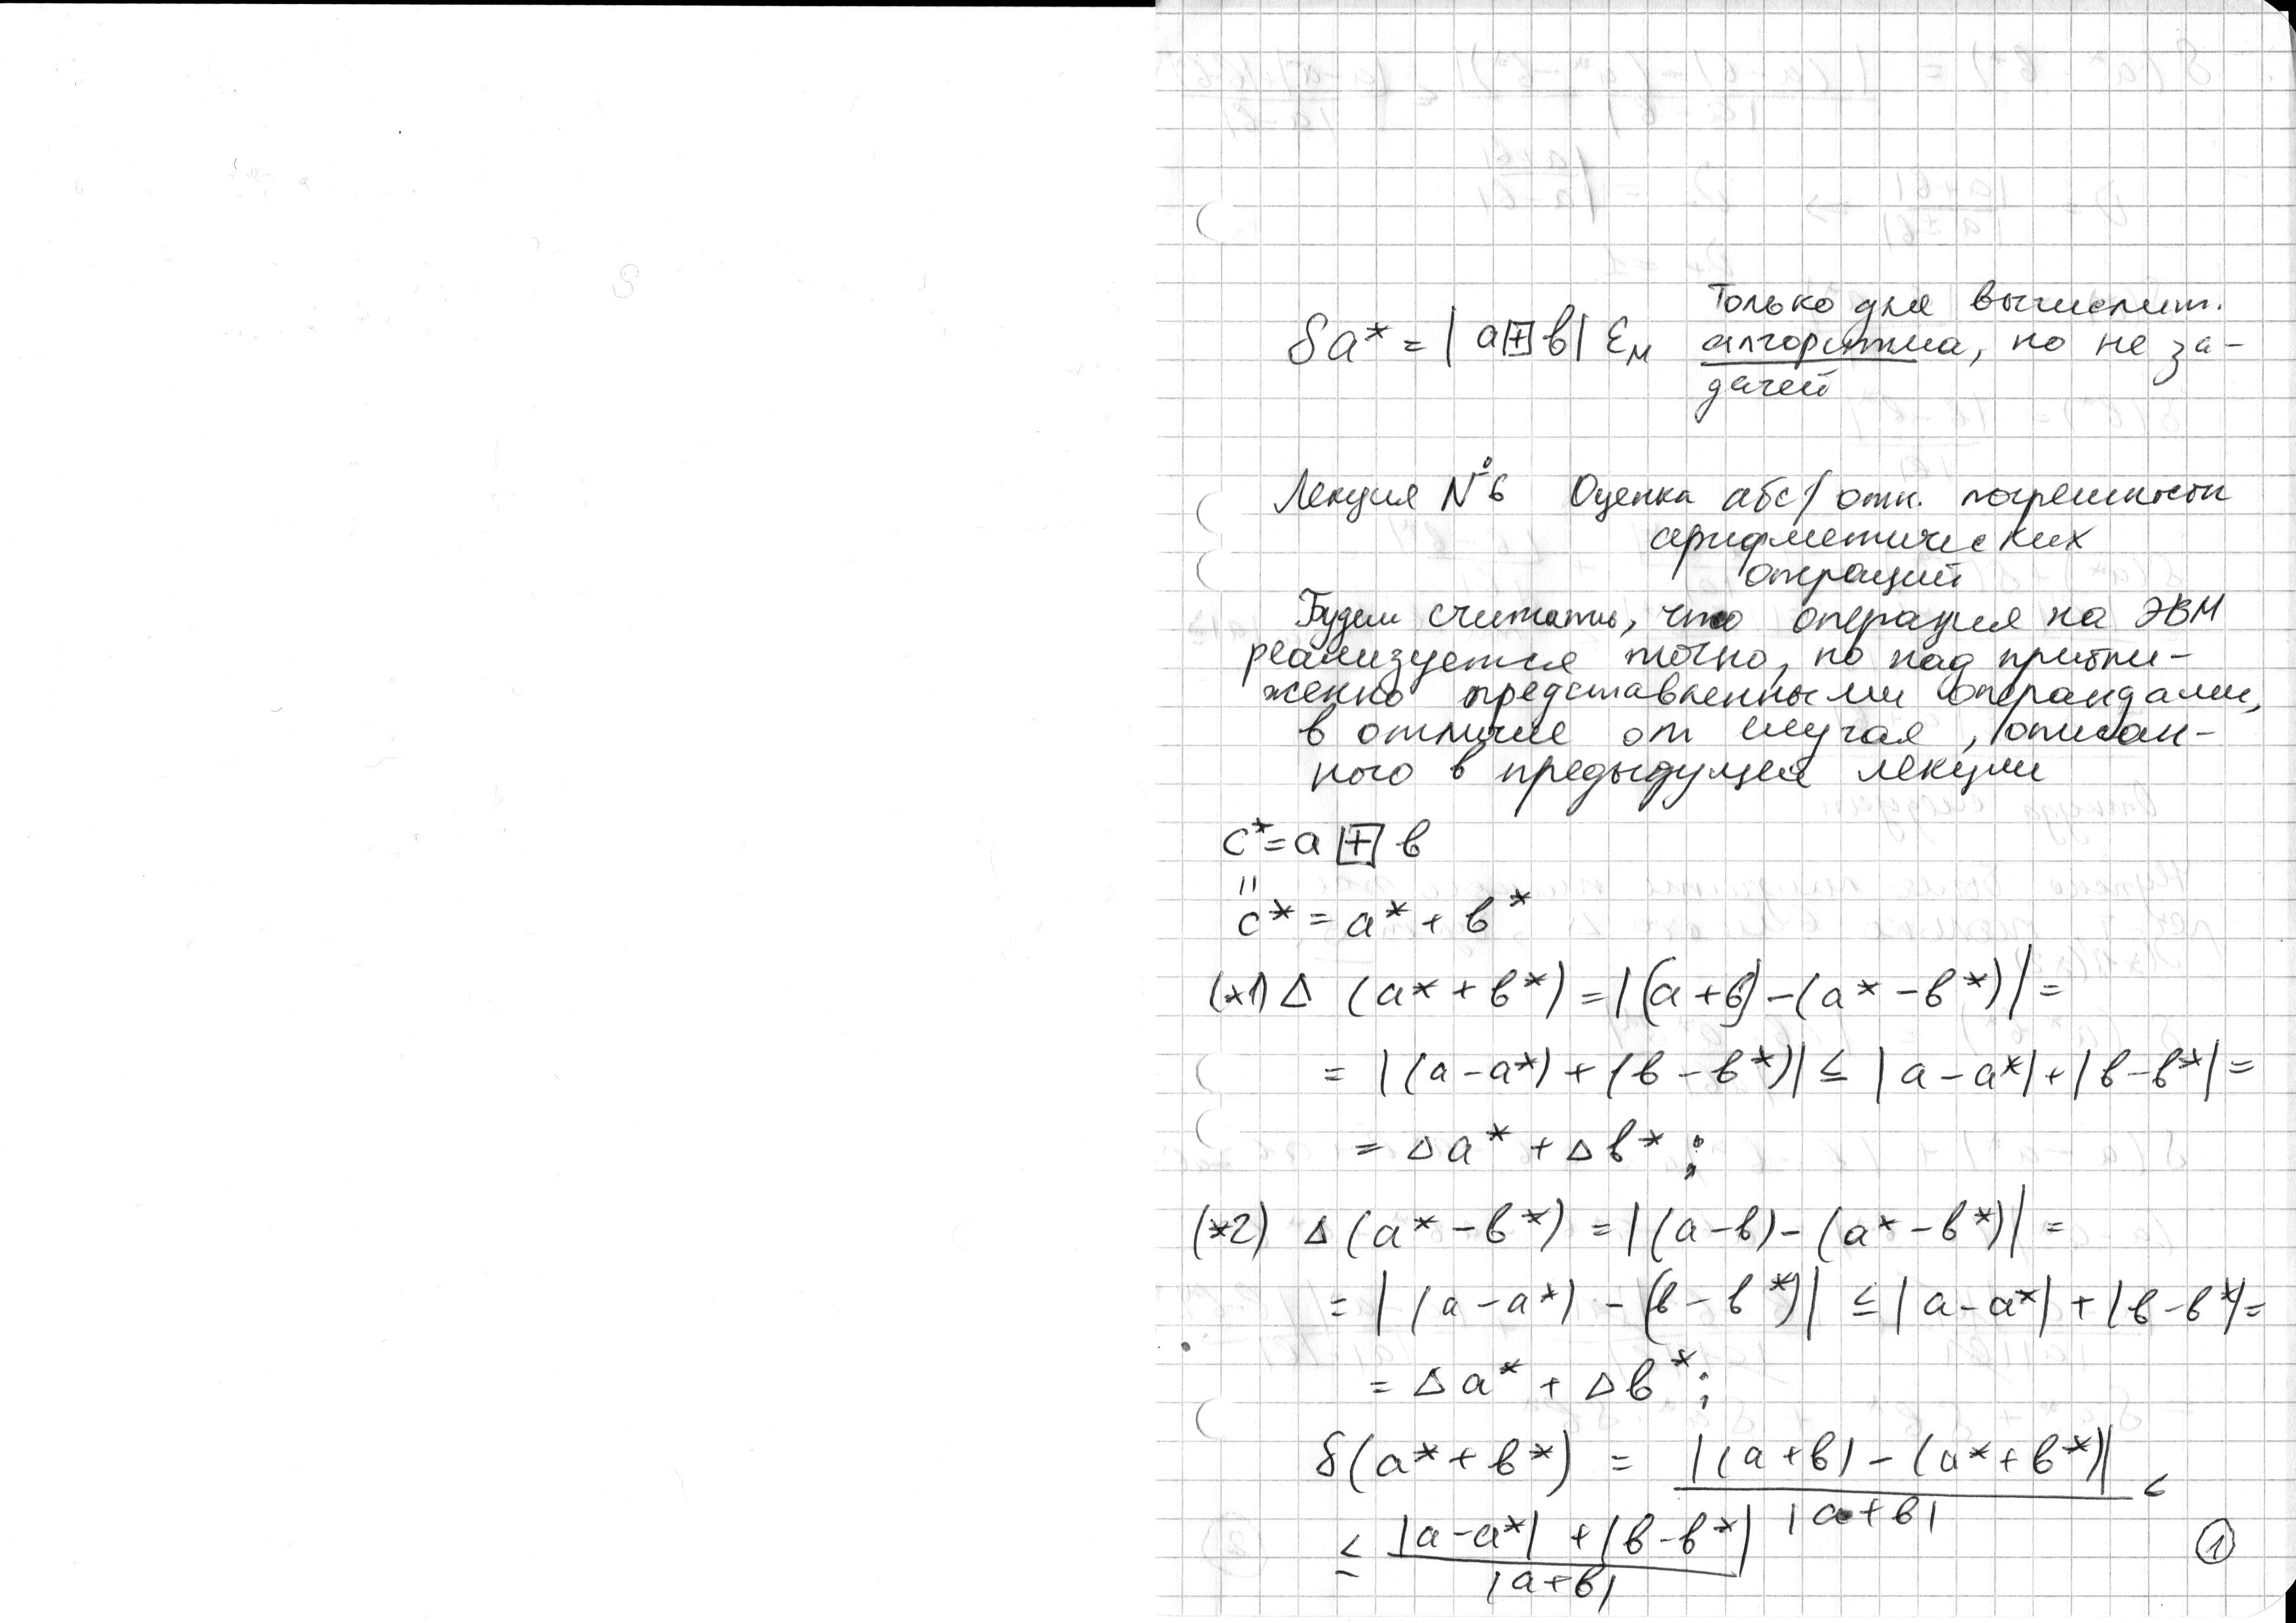 δa* = | a ⊞ в | εм
Только для вычислит.
алгоритма, но не за-
дачей
Лекция №6 Оценка абс/отн. погрешности
арифметических
операций
Будем считать, что операция на ЭВМ
реализуется точно, но над прибли-
женно представленными операндами,
в отличие от случая, описан-
ного в предыдущей лекции
c* = a ⊞ в
||
c* = a* + в*
(*1) Δ (a* + в*) = |(a + в) – (a* – в*)| =
= |(a – a*) + (в – в*)| ≤ |a – a*| + |в – в*| =
= Δa* + Δв* ;
(*2) Δ (a* – в*) = |(a – в) – (a* – в*)| =
= |(a – a*) – (в – в*)| ≤ |a – a*| + |в – в*| =
= Δa* + Δв* ;
δ(a* + в*) = |(a + в) – (a* + в*)| / |a + в| ≤
≤ |a – a*| + |в – в*| / |a + в|
1